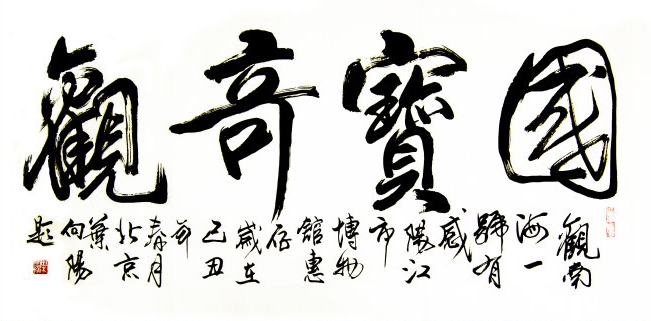 國寶奇觀
觀南
海一
號有
感
陽江
市
博物
館惠
存
歲在
己丑
年
春月
北京
葉
向陽
題